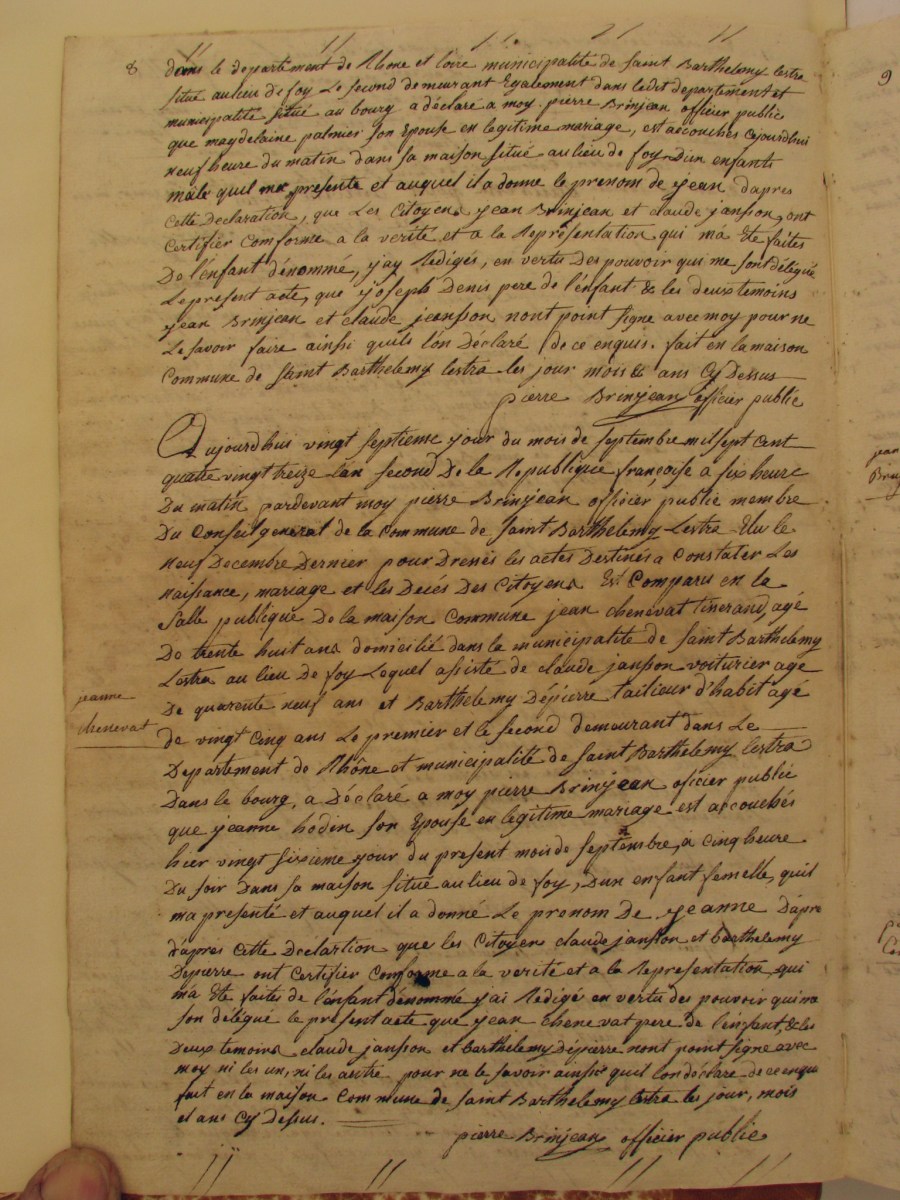 8
dans le departement de Rhone et loire municipalité de saint Barthelemy lestra
situé au lieu de foy Le second demeurant Egalement dans ledit departement et
municipalité situé au bourg a déclaré a moy pierre Brinjean officier public
que magdelaine palmier son Epouse en legitime mariage, est acouchés cejourdhui
neuf heure du matin dans sa maison situé au lieu de foy Dun enfants
male quil ma presenté et auquel il a donné le prenom de jean dapres
cette Declaration, que Les Citoyens jean Brinjean et claude janson, ont
Certifier Comforme a la verité et a la Representation qui má Ete faites
De l'énfant dénommé, j'ay Rediges, en vertu Des pouvoir qui me sont délégué
Le present acte, que joseph Denis pere de l'énfant & les deux temoins
jean Brinjean et claude jeansson nont point signe avec moy pour ne
Le savoir faire ainsi quils lón Déclaré de ce enquis. fait en la maison
Commune de saint Barthelemy lestra les jour mois & ans Cy Dessus
pierre Brinjean officier public
Aujourdhui vingt septieme jour du mois de septembre mil sept cent
quatre vingt treize lán second De la Republique françoise a six heure
Du matin pardevant moy pierre Brinjean officier public membre
Du Conseil general de la Commune de saint Barthelemy Lestra Elu le
neuf Decembre Dernier pour Dresses les actes Destinés a Constater Les
naissance, mariage et les Décés Des Citoyens Est Comparu en la
salle publique De la maison Commune jean chenevat tinerand, agé
De trente huit ans domicilié dans le municipalité de saint Barthelemy
Lestra au lieu De foy Lequel assisté de claude janson voiturier agé
De quarente neuf ans et Barthelemy Dépierre tailieur d'habit agé
jeanne
chenevat
de vingt cinq ans Le premier et le second demeurant dans Le
Departement de Rhône et municipalité de saint Barthelemy lestra
Dans le bourg, a Déclaré a moy pierre Brinjean officier public
que jeanne hodin son Epouse en legitime mariage est acouchés
hier vingt sixieme jour du present mois de septembre, à cinq heure
Du soir Dans sa maison situé au lieu de foy, Dun enfant femelle, quil
ma presenté et auquel il a donné Le prenom De jeanne Dápre
d'apres cette Déclartion que les Citoyens claude janson et barthelemy
Dépierre ont Certifier Conforme a la verité et a la Representation qui
ma Ete faites de l'énfant dénommé j'ai Redigé en vertu des pouvoir qui ma
son délégué le present acte que jean chenevat pere De l'énfant, & les
Deux temoins claude janson et barthelemy dépierre nont point signe avec
moy ni les un, ni les autre pour ne le savoir ainsi quil lon déclare de ce enquis
fait en la maison Commune de saint Barthelemy lestra les jour, mois
et ans Cy Dessus.
pierre Brinjean officier public
9
jean